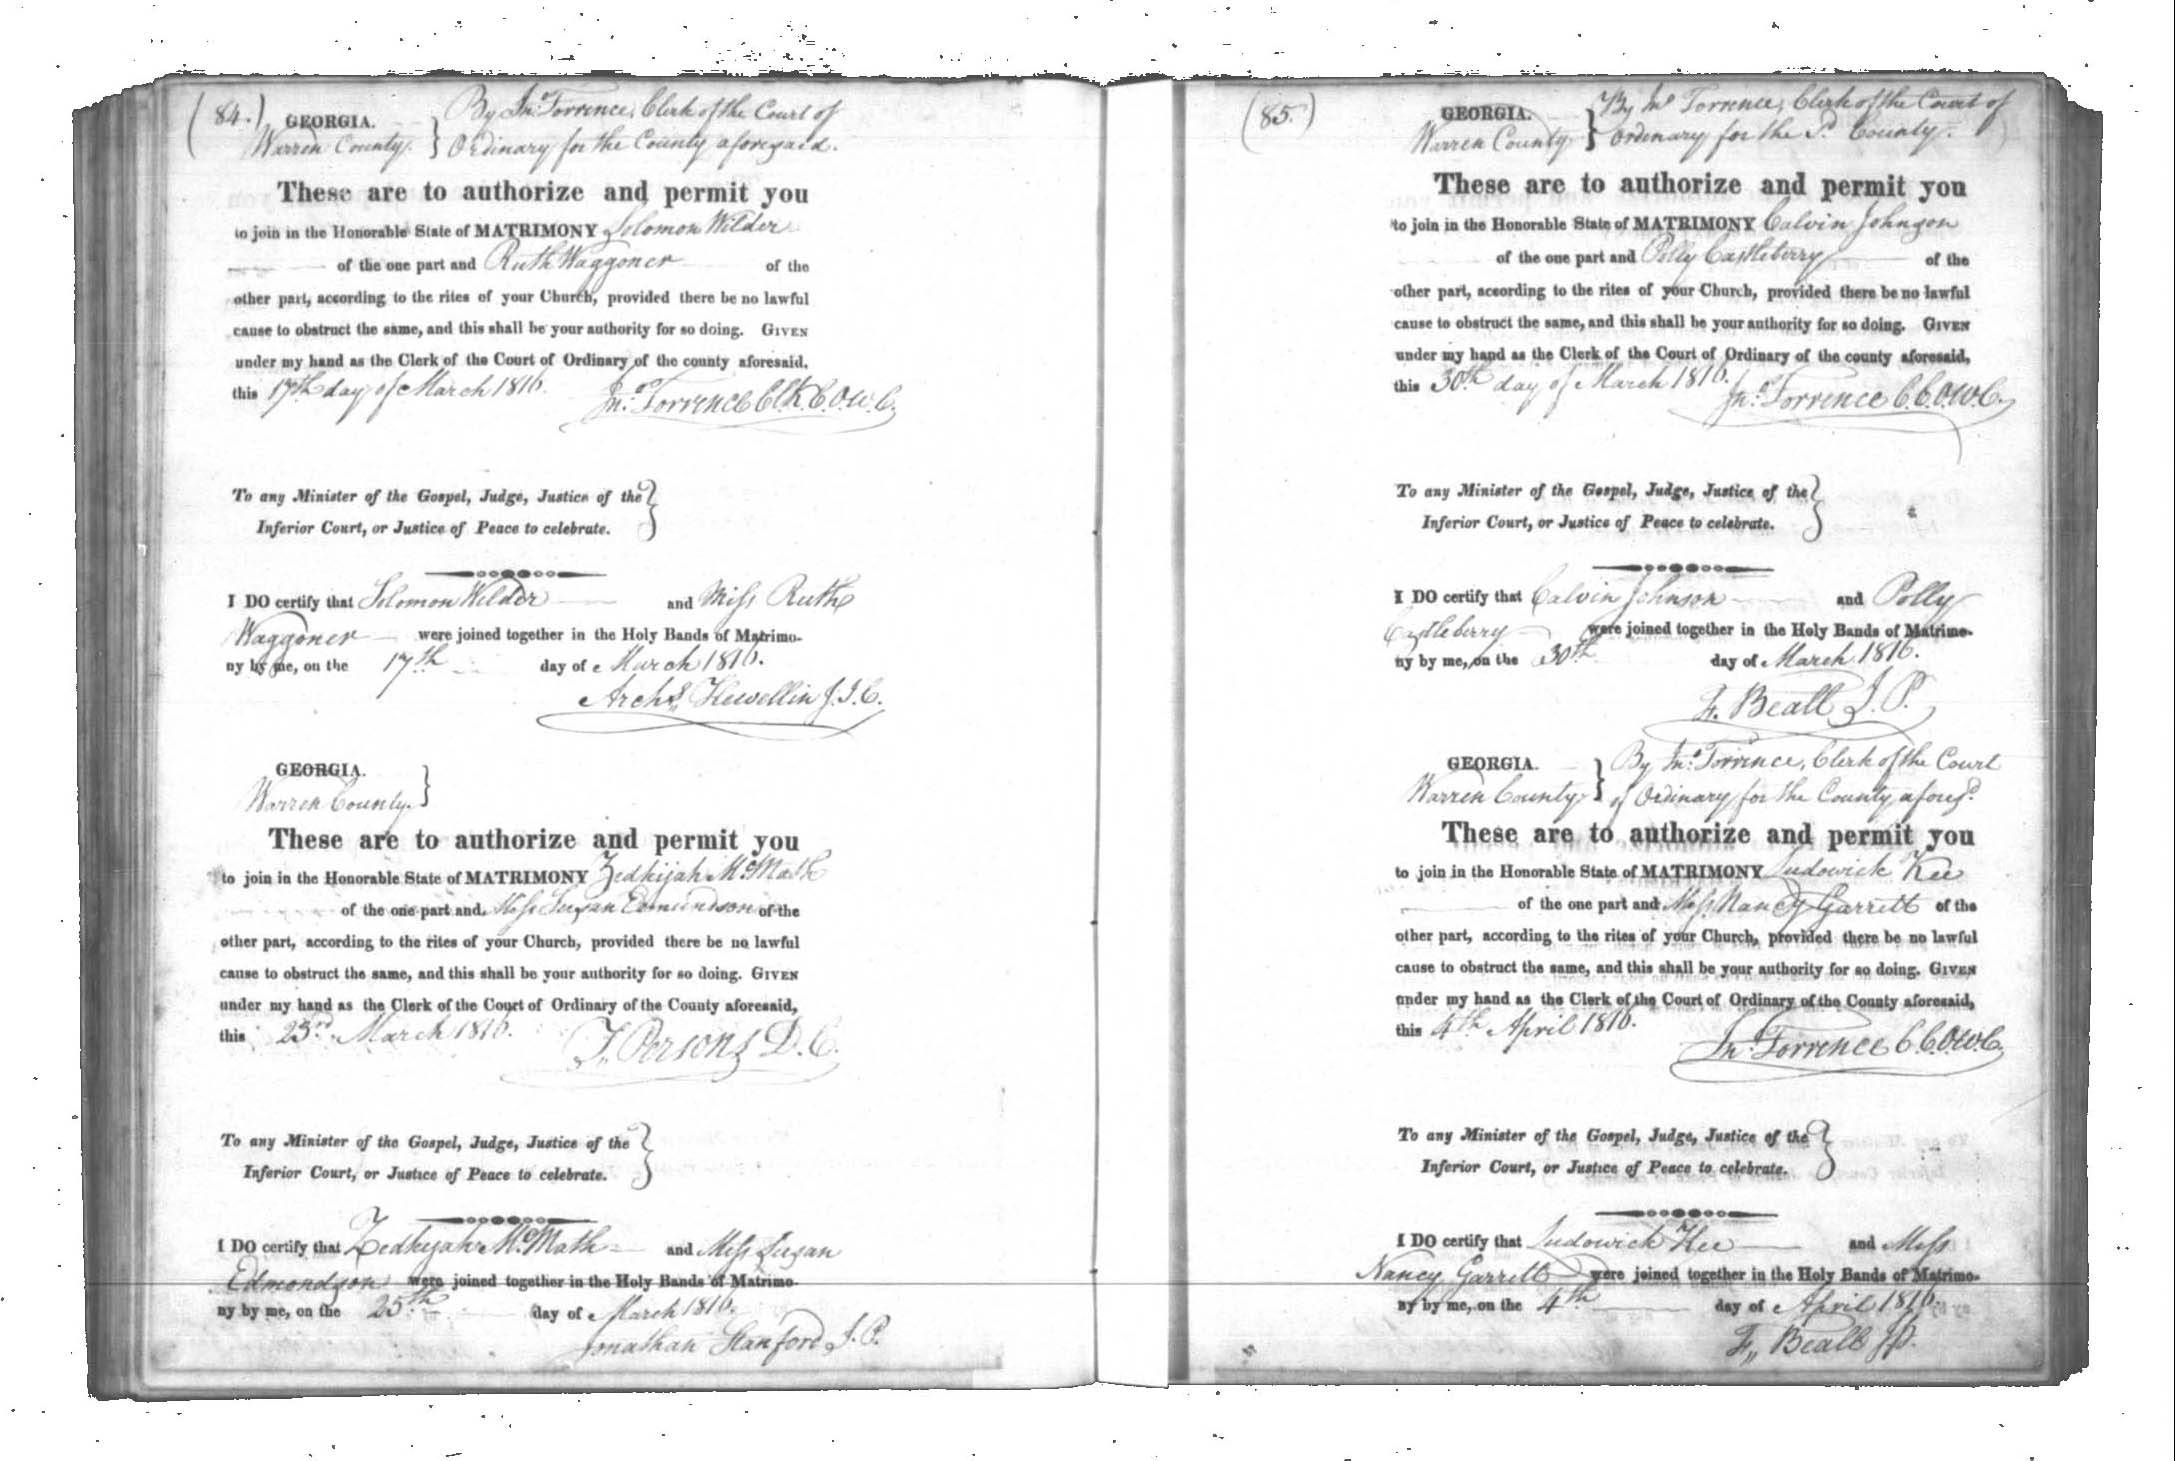 (84.)
GEORGIA. } By Jno. Torrence, Clerk of the Court of
Warren County. } Ordinary for the County aforesaid.
These are to authorize and permit you
to join in the Honorable State of MATRIMONY Solomon Wilder
of the one part and Ruth Waggoner of the
other part, according to the rites of your Church, provided there be no lawful
cause to obstruct the same, and this shall be your authority for so doing. GIVEN
under my hand as the Clerk of the Court of Ordinary of the county aforesaid,
this 17th day of March 1816.
Jno. Torrence Clk C.O.W.C.
To any Minister of the Gospel, Judge, Justice of the }
Inferior Court, or Justice of Peace to celebrate.
I DO certify that Solomon Wilder and Miss Ruth
Waggoner were joined together in the Holy Bands of Matrimo-
ny by me, on the 17th day of March 1816.
Archd. Flewellin J.I.C.
GEORGIA. }
Warren County. }
These are to authorize and permit you
to join in the Honorable State of MATRIMONY Zedkijah McMath
of the one part and Miss Susan Edmundson of the
other part, according to the rites of your Church, provided there be no lawful
cause to obstruct the same, and this shall be your authority for so doing. GIVEN
under my hand as the Clerk of the Court of Ordinary of the County aforesaid,
this 23rd March 1816.
T. Persons D.C.
To any Minister of the Gospel, Judge, Justice of the }
Inferior Court, or Justice of Peace to celebrate.
I DO certify that Zedkijah McMath and Miss Susan
Edmondson were joined together in the Holy Bands of Matrimo-
ny by me, on the 25th day of March 1816.
Jonathan Stanford J.P.
(85.)
GEORGIA. } By Jno Torrence, Clerk of the Court of
Warren County } Ordinary for the Sd. County.
These are to authorize and permit you
to join in the Honorable State of MATRIMONY Calvin Johnson
of the one part and Polly Castleberry of the
other part, according to the rites of your Church, provided there be no lawful
cause to obstruct the same, and this shall be your authority for so doing. GIVEN
under my hand as the Clerk of the Court of Ordinary of the county aforesaid,
this 30th day of March 1816.
Jno. Torrence C.C.O.W.C.
To any Minister of the Gospel, Judge, Justice of the }
Inferior Court, or Justice of Peace to celebrate.
I DO certify that Calvin Johnson and Polly
Castleberry were joined together in the Holy Bands of Matrimo-
ny by me, on the 30th day of March 1816.
F. Beall J.P.
GEORGIA. } By Jno. Torrence, Clerk of the Court
Warren County } of Ordinary for the County aforesd.
These are to authorize and permit you
to join in the Honorable State of MATRIMONY Ludowick Kee
of the one part and Miss Nancy Garrett of the
other part, according to the rites of your Church, provided there be no lawful
cause to obstruct the same, and this shall be your authority for so doing. GIVEN
under my hand as the Clerk of the Court of Ordinary of the County aforesaid,
this 4th April 1816.
Jno. Torrence C.C.O.W.C.
To any Minister of the Gospel, Judge, Justice of the }
Inferior Court, or Justice of Peace to celebrate.
I DO certify that Ludowick Kee and Miss
Nancy Garrett were joined together in the Holy Bands of Matrimo-
ny by me, on the 4th day of April 1816.
F. Beall JP.